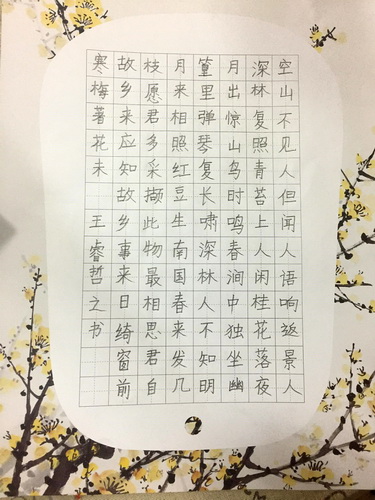 空山不见人但闻人语响返景人
深林复照青苔上人闲桂花落夜
月出惊山鸟时鸣春涧中独坐幽
篁里弹琴复长啸深林人不知明
月来相照红豆生南国春来发几
枝愿君多采撷此物最相思君自
故乡来应知故乡事来日绮窗前
寒梅著花未 王睿哲之书